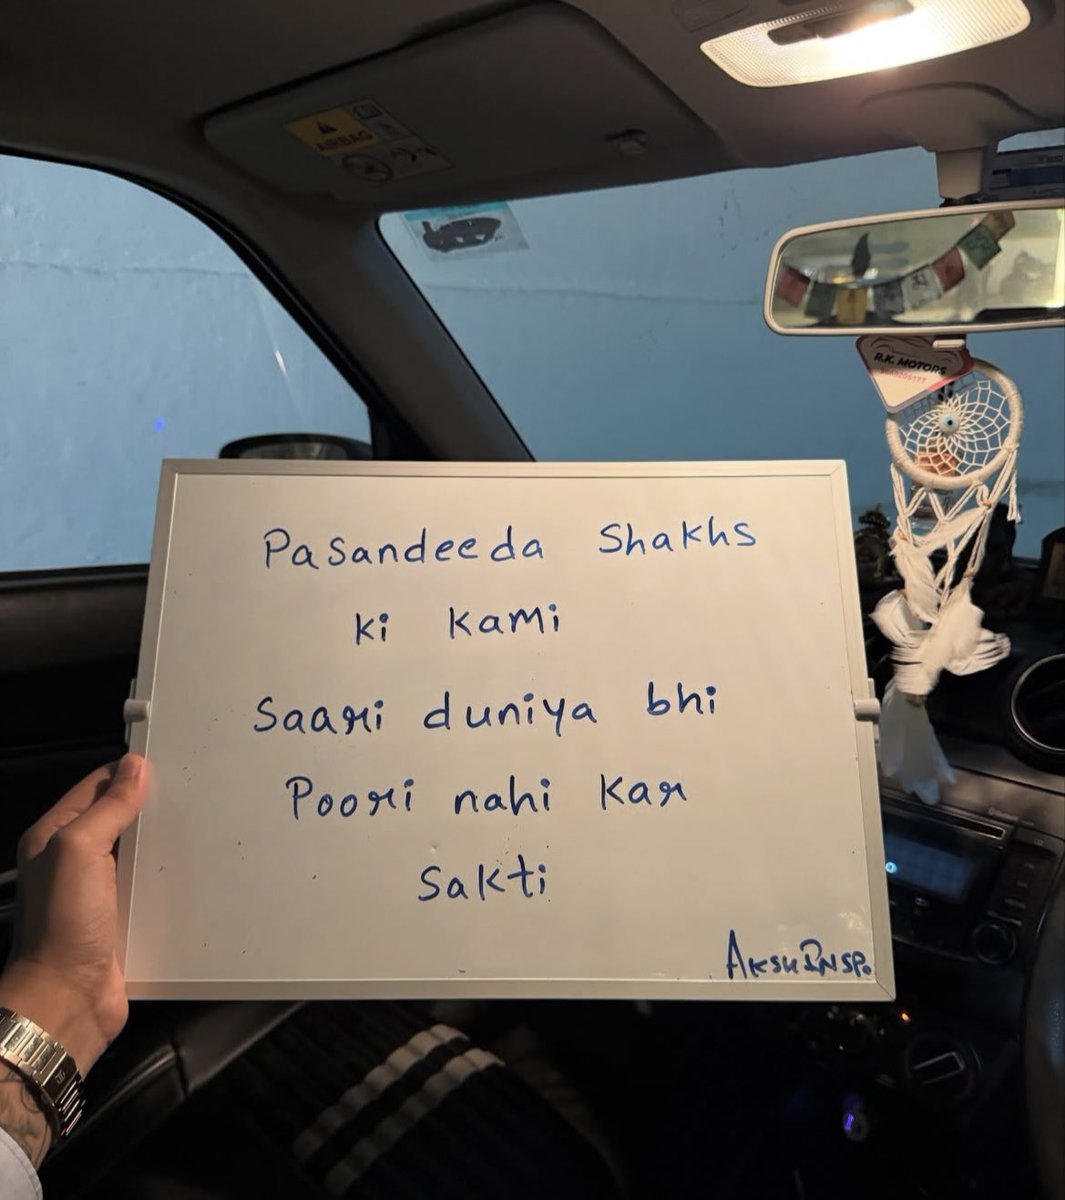 AIRBAG
R.K. MOTORS
Pasandeeda Shakhs
ki kami
Saari duniya bhi
Poori nahi kar
Sakti
AKSHINSP.